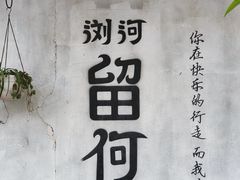 浏河
留
何
你在快乐的行走而我